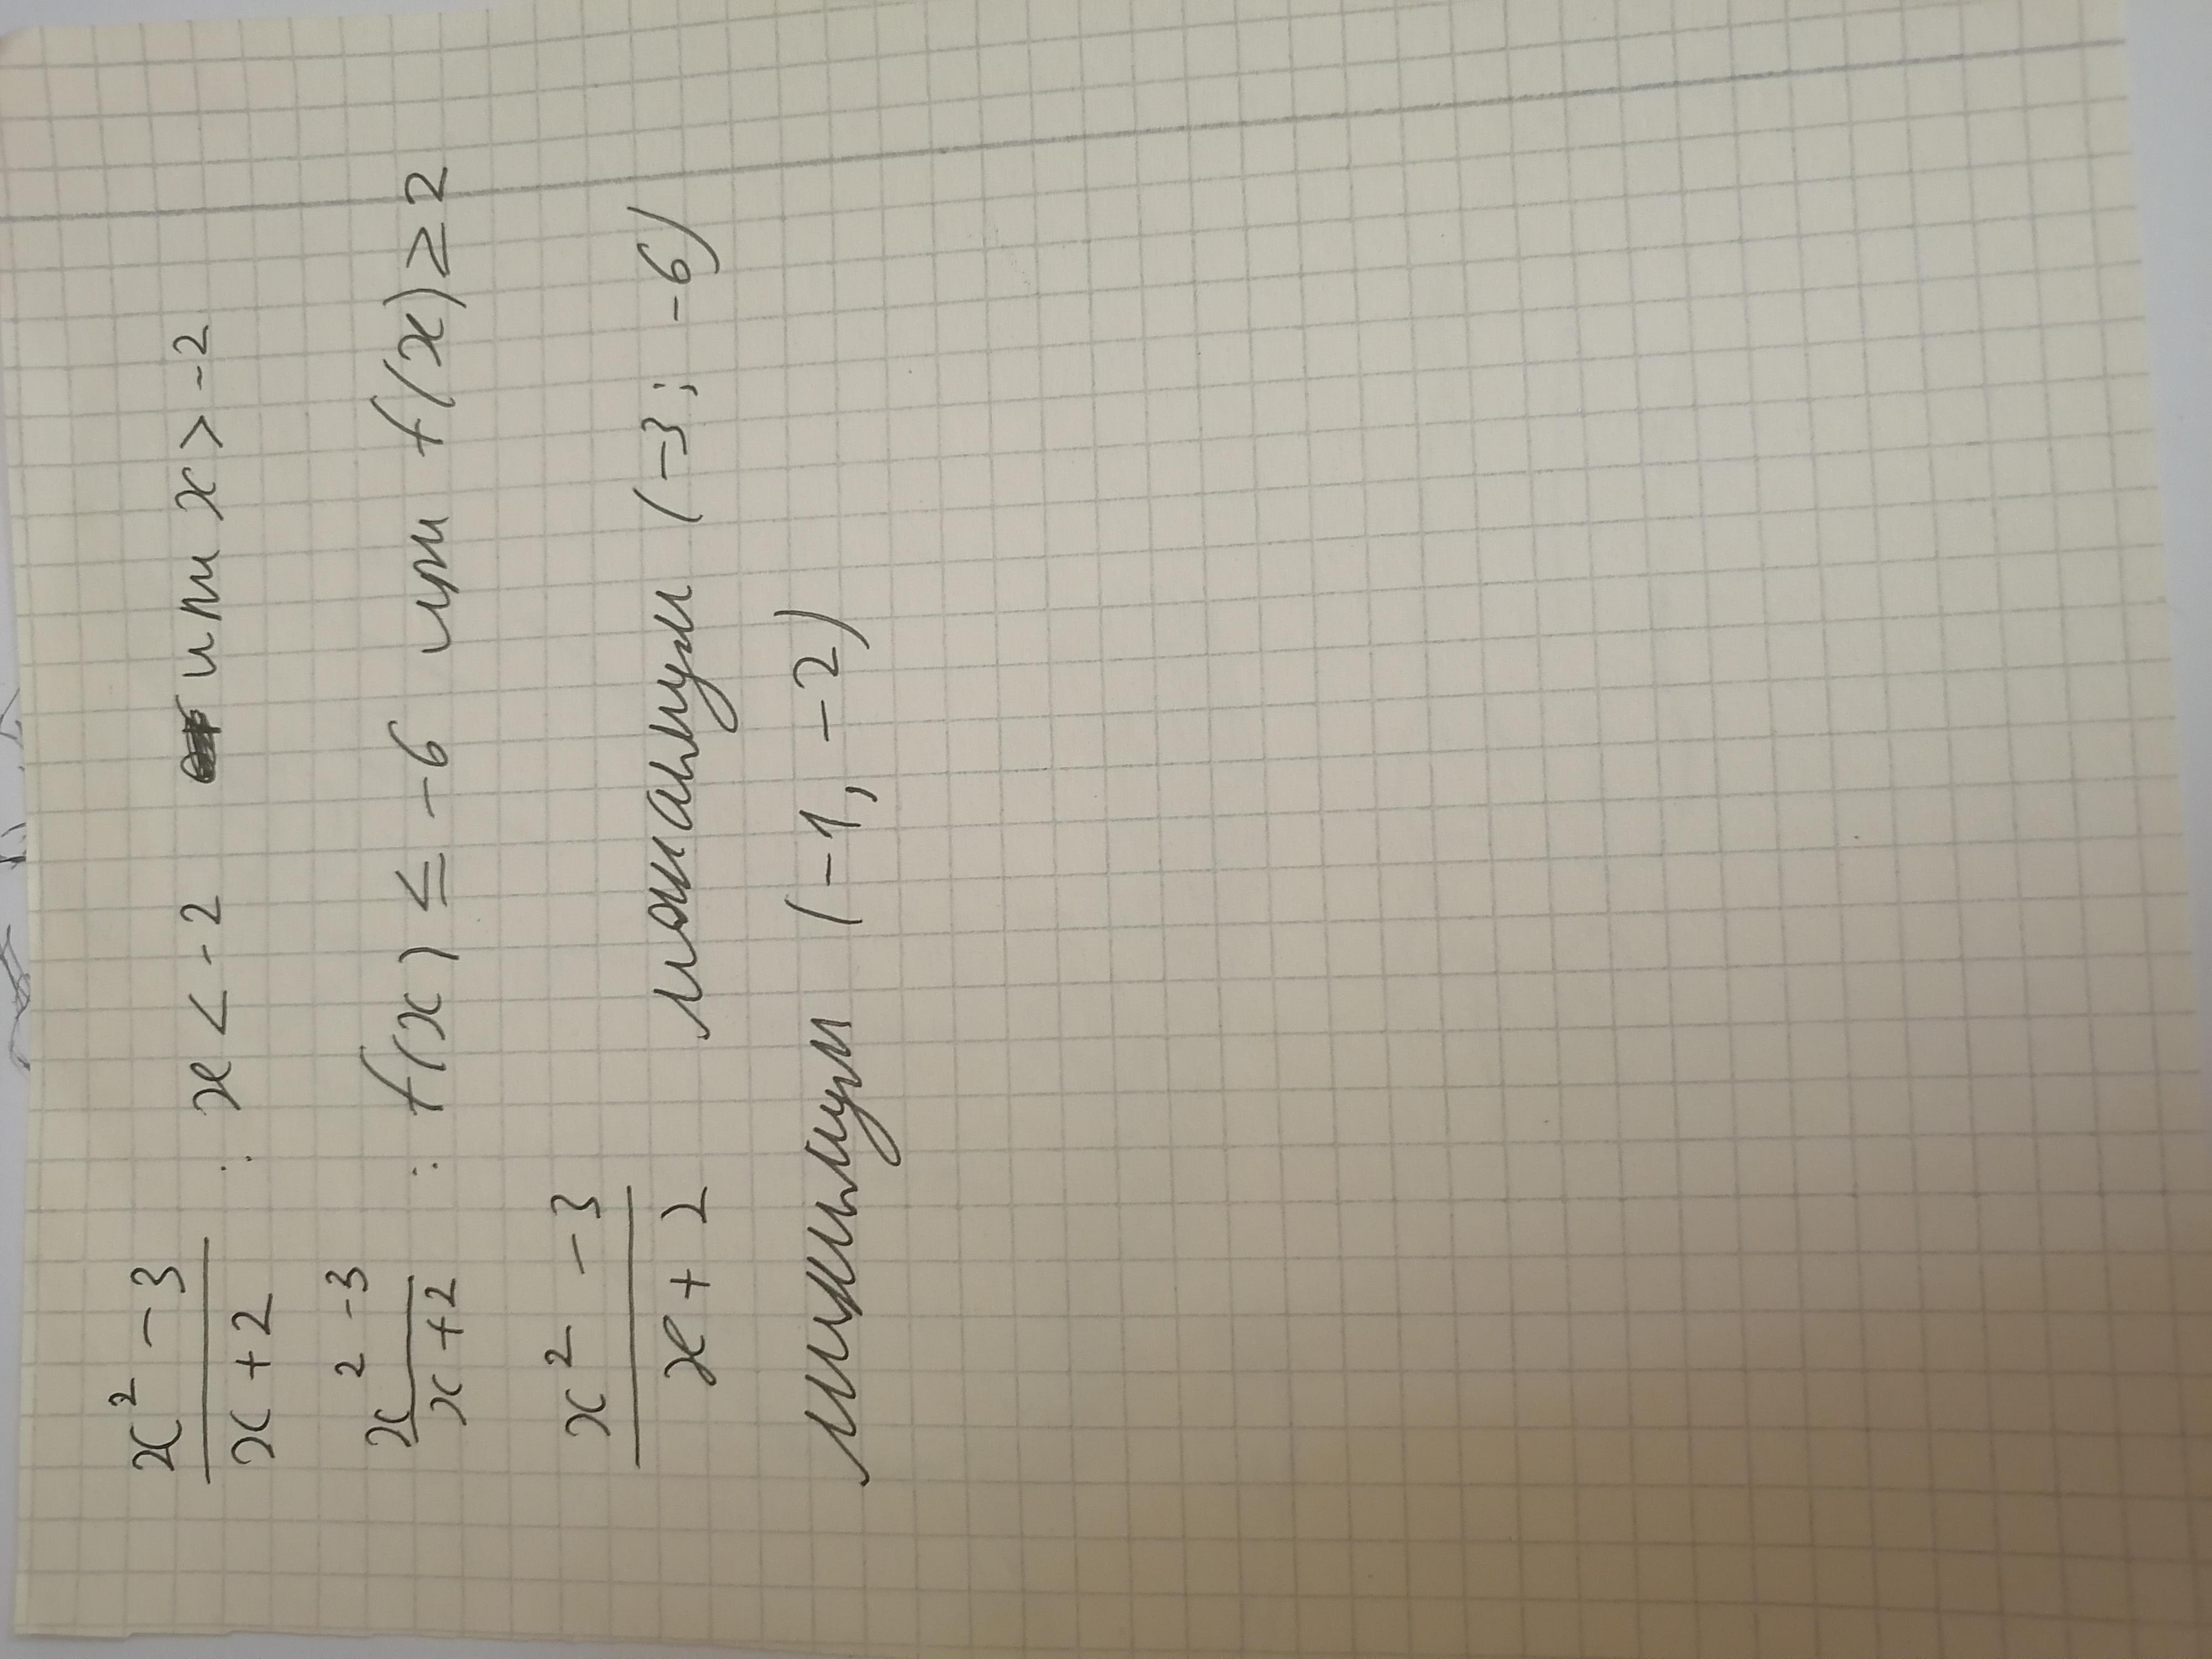 x² - 3 / x + 2 : x < -2 или x > -2
x² - 3 / x + 2 : f(x) ≤ -6 или f(x) ≥ 2
x² - 3 / x + 2 максимум (-3; -6)
минимум (-1, -2)